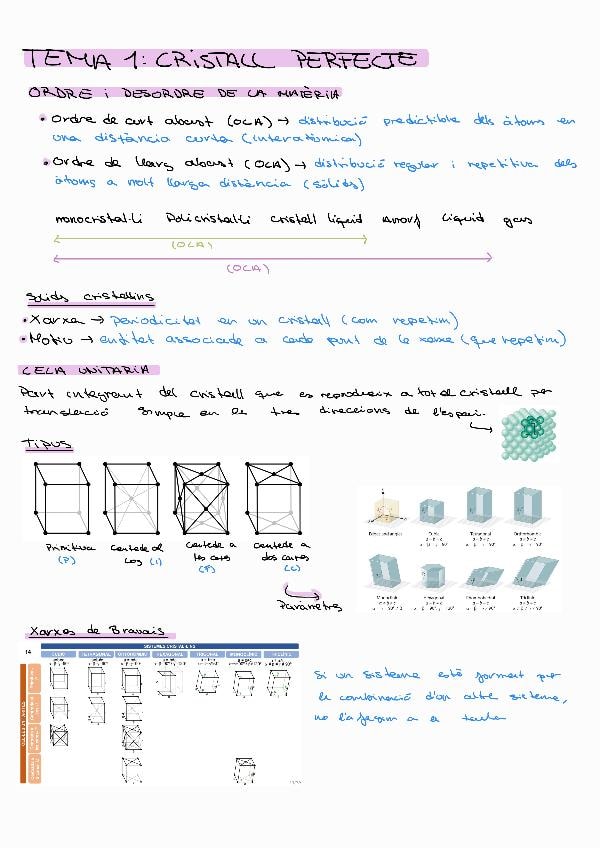 TEMA 1: CRISTALL PERFECTE
ORDRE i DESORDRE DE LA MATÈRIA
• Ordre de curt abast (OCA) → distribució predictible dels àtoms en
una distància curta (interatòmica)
• Ordre de llarg abast (OLA) → distribució regular i repetitiva dels
àtoms a molt llarga distància (sòlids)
monocristal·lí Policristal·lí cristall líquid Amorf líquid gas
(OLA)
(OCA)
Sòlids cristal·lins
• Xarxa → Periodicitat en un cristall (com repetim)
• Motiu → entitat associada a cada punt de la xarxa (que repetim)
CEL·LA UNITÀRIA
Part integrant del cristall que es reprodueix a tot el cristall per
translació simple en les tres direccions de l'espai.
Tipus
Primitiva Centrada al Centrada a Centrada a
(P) cos (I) les cares dos cares
(F) (C)
Paràmetres
Cúbic Tetragonal Orthorhombic
Monoclinic Hexagonal Rhombohedral Triclinic
Xarxes de Bravais
14
SISTEMES CRISTAL·LINS
CÚBIC TETRAGONAL ORTORÒMBIC HEXAGONAL TRIGONAL MONOCLÍNIC TRICLÍNIC
Si un sistema està format per
la combinació d'un altre sistema,
no l'afegim a la taula